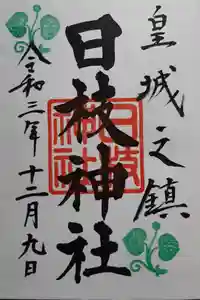 皇城之鎮
日枝神社
令和三年十二月九日
日枝神社